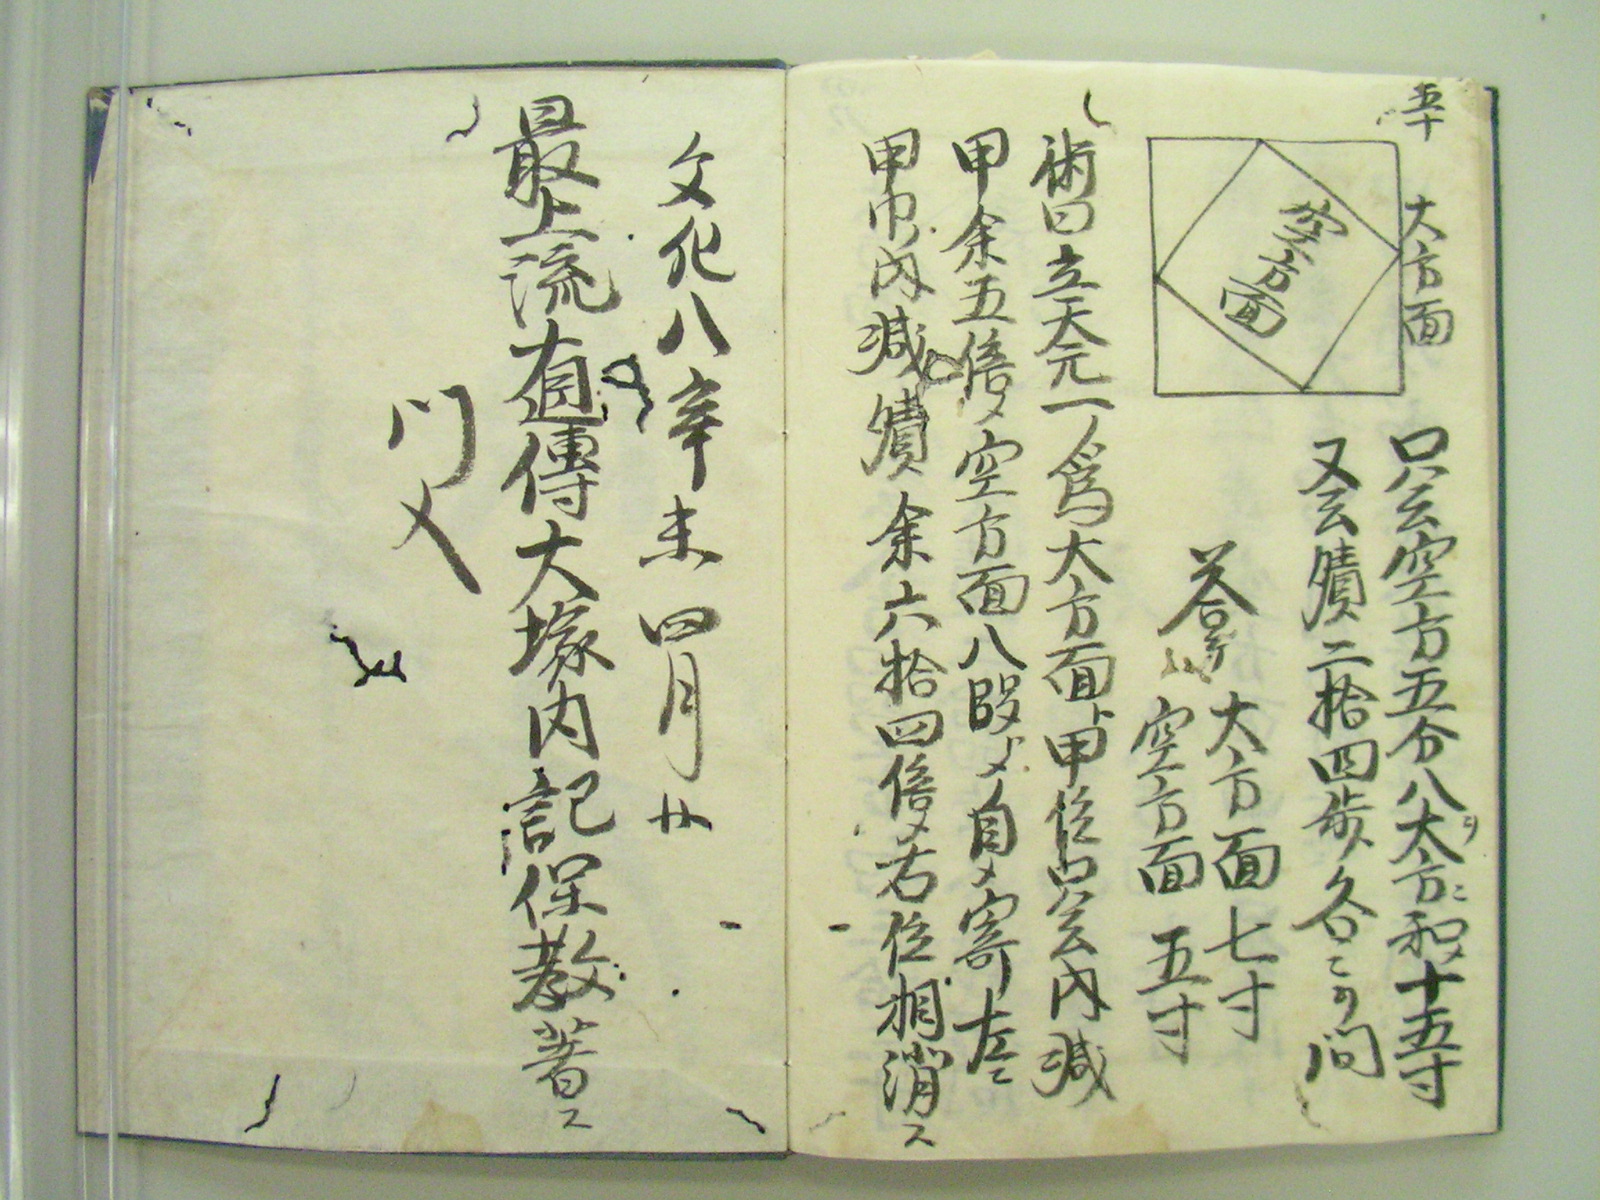 五十
大方面
空方面
只云空方五分八大方ニ和メ十五寸
又云積二拾四歩各ニ可問
答テ
大方面七寸
空方面五寸
術曰立天元一ノ為大方面ト甲位只云内減
甲余五倍メ空方面八段メ自メ寄左ニ
甲巾内減積余六拾四倍メ右位相消ス
文化八辛未四月廿
最上流直傳大塚内記保教著ス
門人